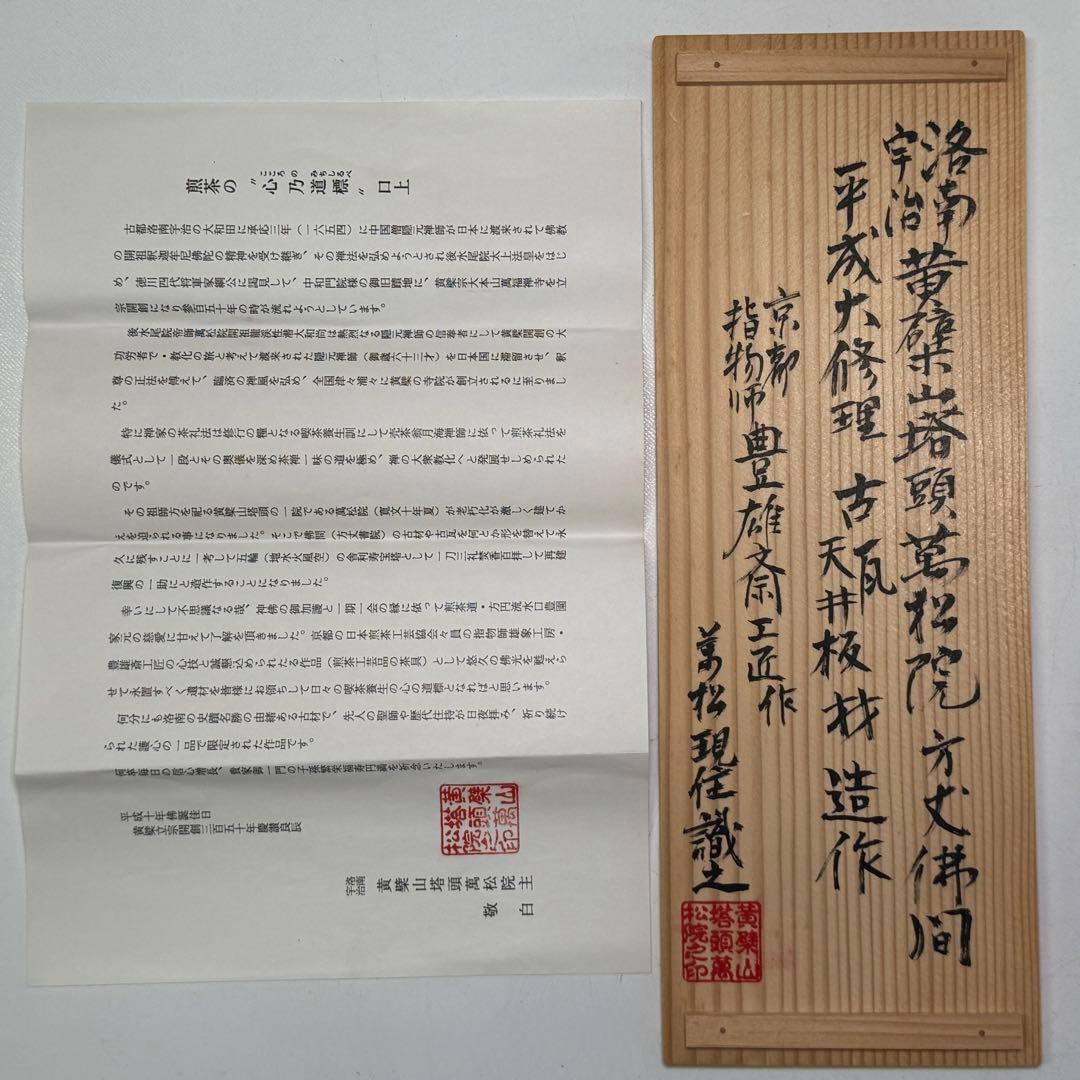 煎茶の〝心乃道標〟口上
こころの みちしるべ
古都洛南宇治の大和田に承応三年(一六五四)に中国僧隠元禅師が日本に渡来されて佛教
の開祖釈迦牟尼佛陀の精神を受け継ぎ、その禅法を弘めようとされ後水尾院太上法皇をはじ
め、徳川四代将軍家綱公に謁見して、中和門院様の御旧蹟地に、黄檗宗大本山萬福禅寺を立
宗開創になり参百五十年の時が流れようとしています。
後水尾院帝師萬松院開祖龍渓性潜大和尚は熱烈なる隠元禅師の信奉者にして黄檗開創の大
功労者で・教化の旅と考えて渡来された隠元禅師(御歳六十三才)を日本国に滞留させ、釈
尊の正法を傳えて、臨済の禅風を弘め、全国津々浦々に黄檗の寺院が創立されるに至りまし
た。
特に禅家の茶礼法は修行の糧となる喫茶養生訓にして売茶翁月海禅師に依って煎茶礼法を
儀式として一段とその奥儀を深め茶禅一味の道を極め、禅の大衆教化へと発展せしめられた
のです。
その祖師方を祀る黄檗山塔頭の一院である萬松院(寛文十年夏)が老朽化が激しく建てか
えを迫られる事になりました。そこで佛間(方丈書院)の古材や古瓦を何とか形を替えて永
久に残すことに一考して五輪(地水火風空)の舎利寿宝塔として一刀三礼焚香百拝して再建
復興の一助にと造作することになりました。
幸いにして不思議なる哉、神佛の御加護と一期一会の縁に依って煎茶道・方円流水口豊園
家元の慈愛に甘えて了解を頂きました。京都の日本煎茶工芸協会々員の指物師雄家工房・
豊雄斎工匠の心技と誠願込められたる作品(煎茶工芸品の茶具)として悠久の佛光を甦えら
せて永置すべく遺材を皆様にお頒ちして日々の喫茶養生の心の道標となればと思います。
何分にも洛南の史蹟名勝の由緒ある古材で、先人の聖師や歴代住持が日夜拝み、祈り続け
られた誠心の一品で限定された作品です。
何卒毎日の信心増長、貴家御一門の子孫繁栄福寿円満を祈念いたします。
平成十年佛誕佳日
黄檗立宗開創三百五十年慶讃良辰
洛南
宇治
黄檗山塔頭萬松院主
敬白
黄檗山
塔頭萬
松院之印
洛南
宇治
黄檗山塔頭萬松院 方丈佛間
平成大修理 古瓦
天井板材 造作
京都
指物師 豊雄斎工匠作
萬松現住識之
黄檗山
塔頭萬
松院之印